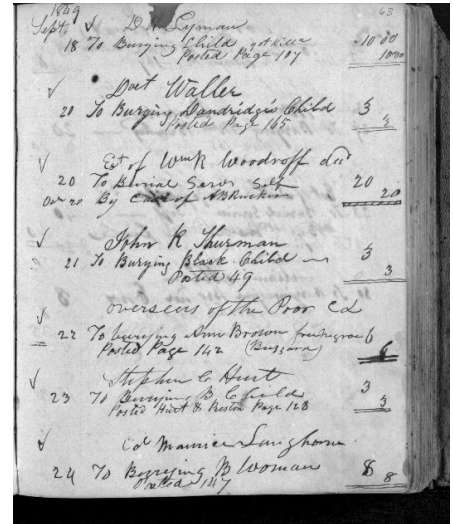 1849 63
Sept. D. R. Lyman
18 To Burying Child got Killd 10 00
Posted Page 107 10 00
Doct Waller
20 To Burying Dandridge's Child 3
Posted Page 165 3
Est of Wm Woodroff decd
20 To Burial Serv Self 20
20 By Cash of 20
John R Thurman
21 To Burying Black Child 3
Posted 49 3
overseers of the Poor Cd
22 To burying Ann Brown free negroe 6
Posted Page 142 (Buzzard) 6
Stephen C Hurt
23 To Burying B Child 3
Posted Hurt & Preston Page 128 3
Col Maurice Langhorne
24 To Burying B Woman 8
Posted 147 8